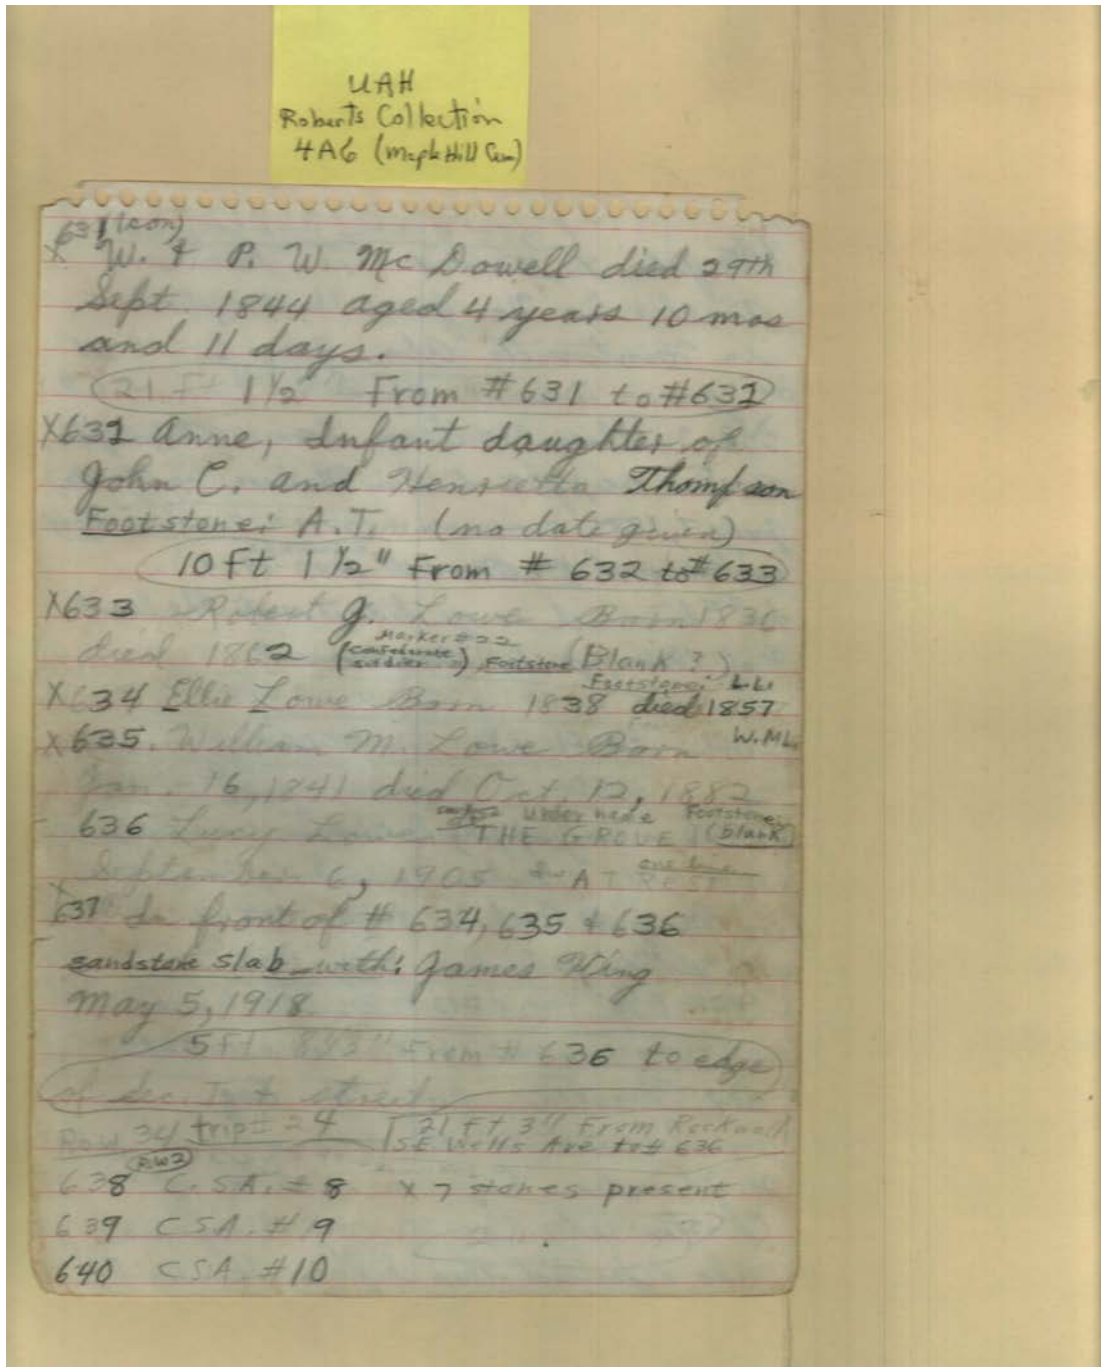 UAH
Roberts Collection
4A6 (Maple Hill Cem)
631 (con)
X W. & P. W. McDowell died 29th
Sept. 1844 aged 4 years 10 mos
and 11 days.
21 Ft 1 1/2" From #631 to #632
X632 Anne, Infant daughter of
John C. and Henrietta Thompson
Footstone: A.T. (no date given)
10 Ft 1 1/2" From # 632 to #633
X633 Robert J. Lowe Born 1836
Marker #22
died 1862 (Confederate soldier) Footstone (Blank?)
Footstone: L.L.
X634 Ellie Lowe Born 1838 died 1857
W.ML.
X635. William M. Lowe Born
Jan. 16, 1841 died Oct. 12, 1882
under name Footstone:
636 Lucy Lowe THE GROVE (blank)
one line
September 6, 1905 AT REST
X
637 In front of # 634, 635 & 636
sandstone slab with: James King
May 5, 1918
5 Ft From # 636 to edge
of street
Row 34 trip# 24 21 Ft 3" From Rockwall
SE Wells Ave to # 636
Row 2
638 C.S.A. # 8 X 7 stones present
639 CSA. # 9
640 CSA. #10